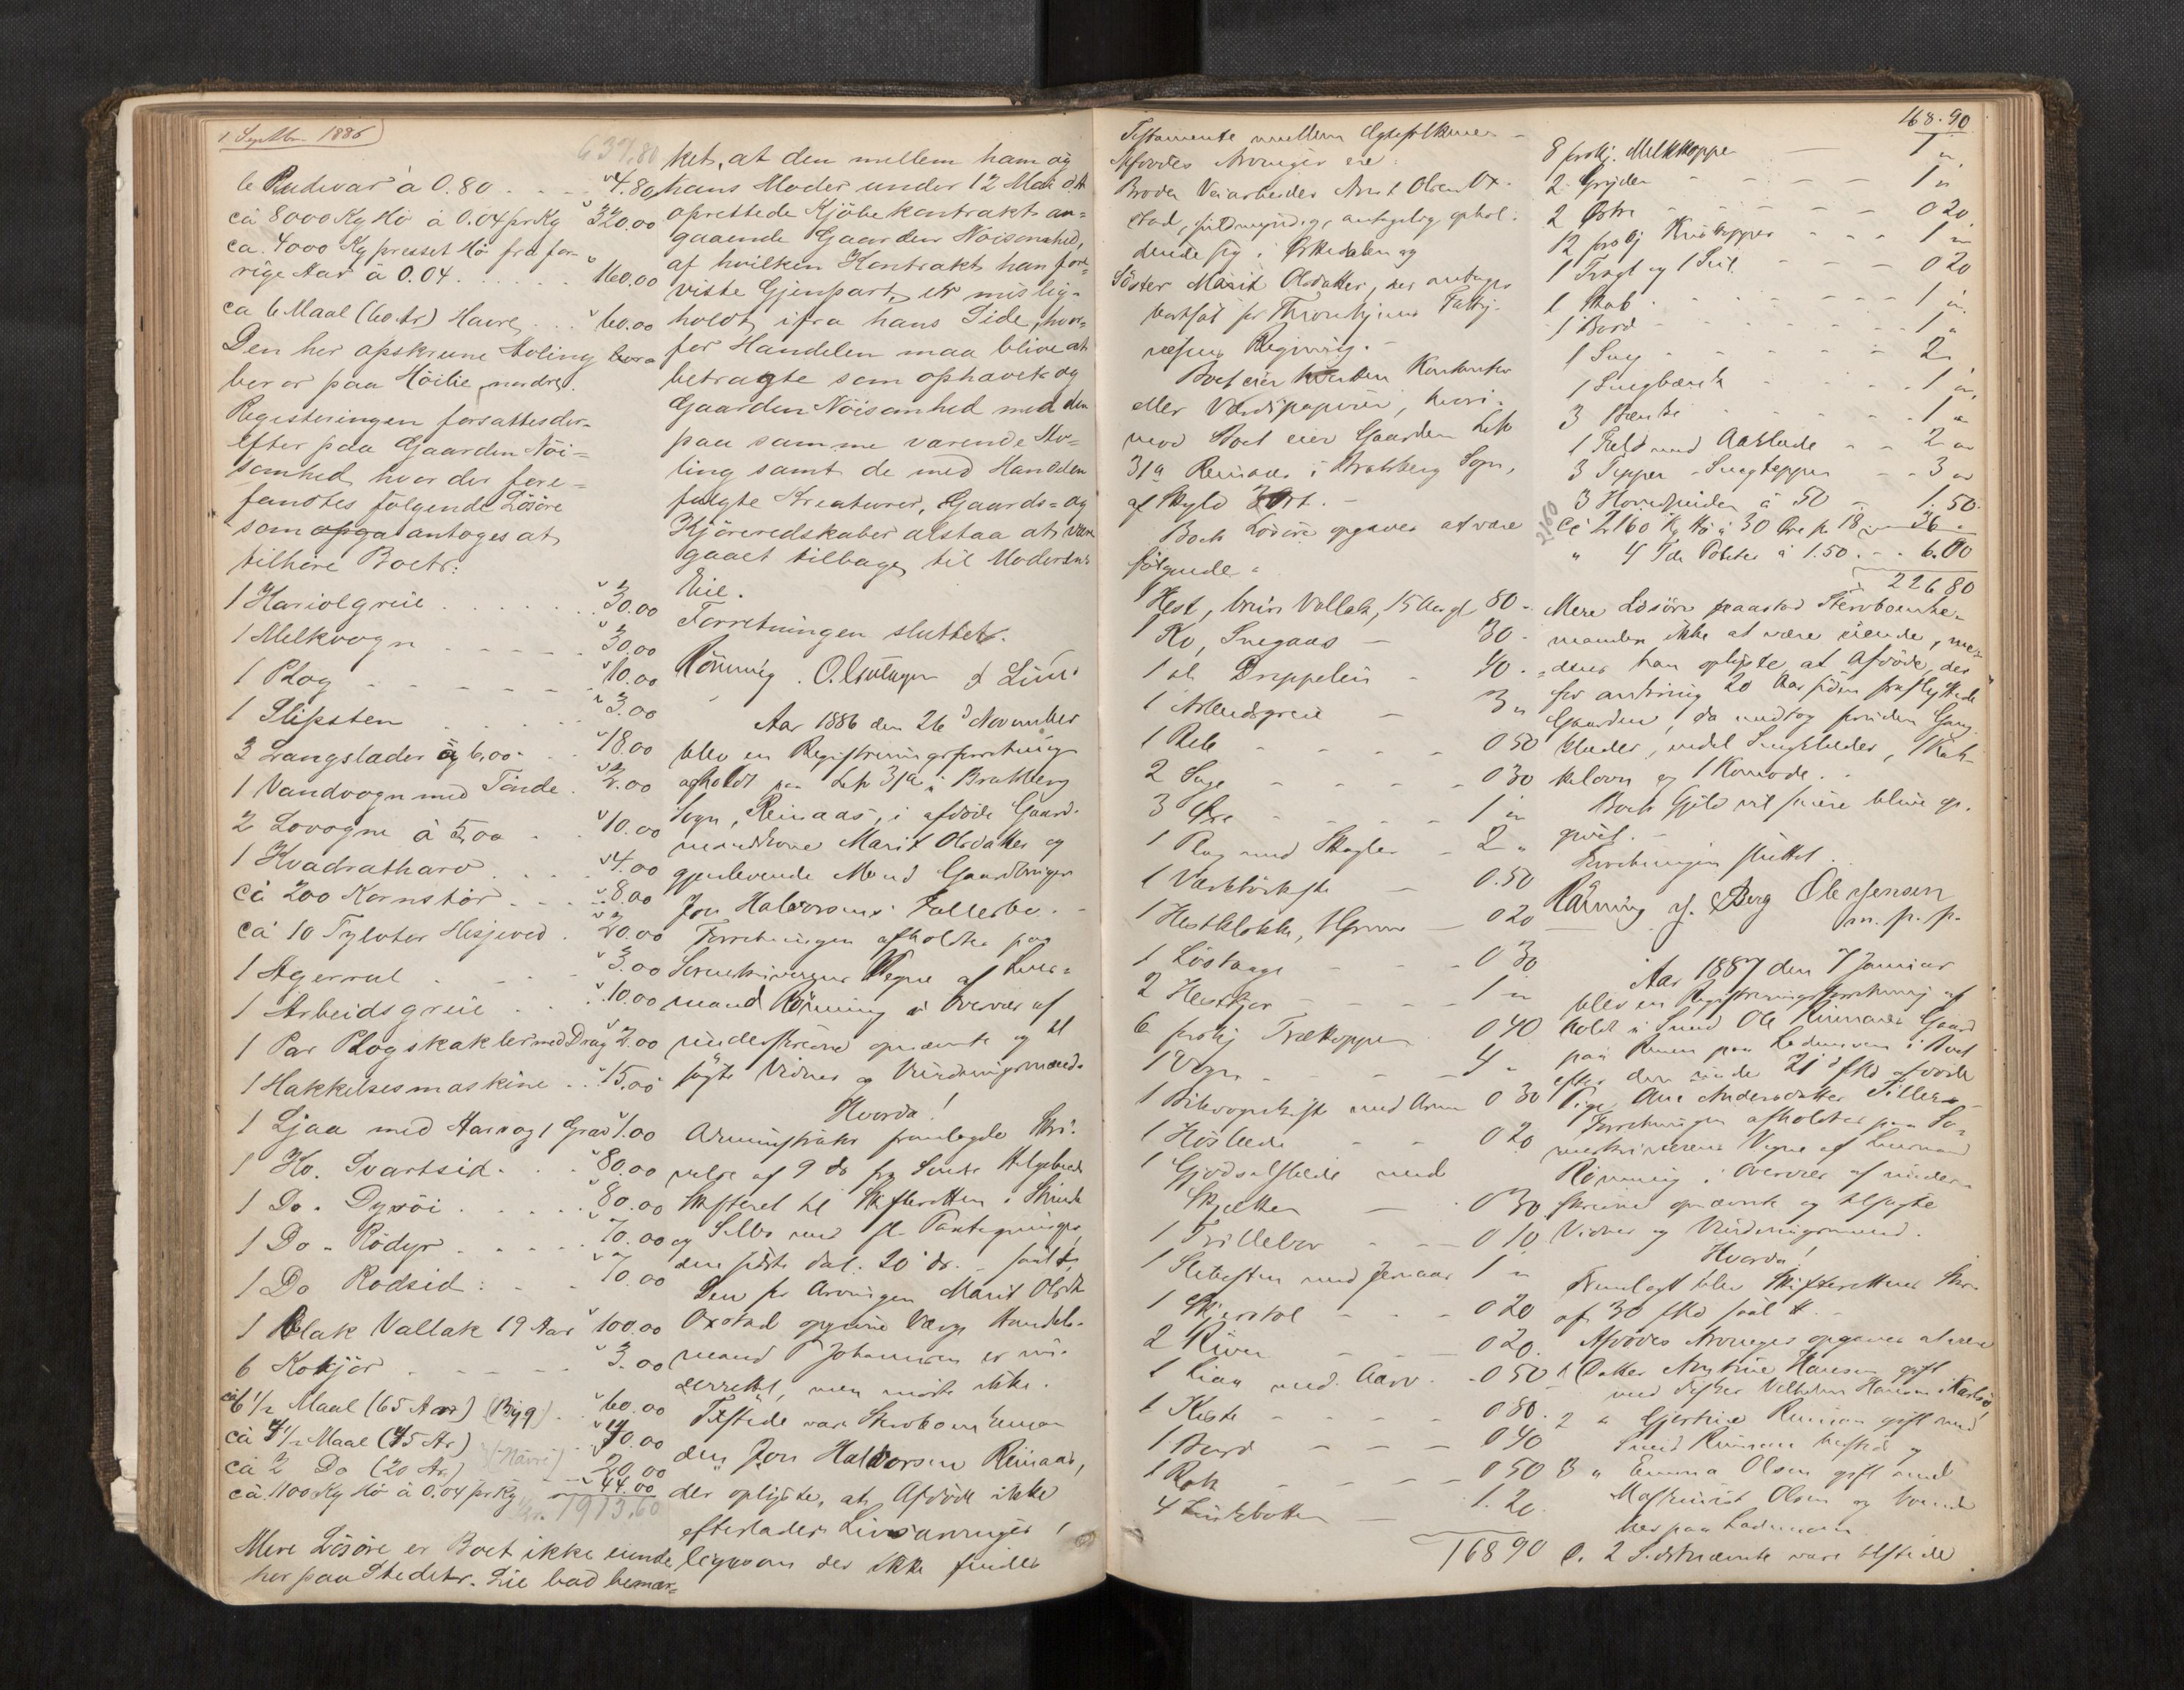 1 Septbr 1886
637.80
6 Rudevar à 0.80 4.80
ca 8000 Kg Hö à 0.04 pr Kg 320.00
ca. 4000 Kg presset Hö fra for-
rige Aar à 0.04 160.00
ca 6 Maal (60 Ar) Havre 60.00
Den her opskrevne Avling bero
ber or paa Höilie nordre.
Registeringen forsattes der-
efter paa Gaarden Nöi-
somhed hvor der fore-
fandtes følgende Lösöre
som opga antoges at
tilhöre Boet:
1 Kariolgreie 30.00
1 Melkvogn 30.00
1 Plog 10.00
1 Slipsten 3.00
3 Langslæder à 6,00 18.00
1 Vandvogn med Tönde 2.00
2 Lovogne à 5,00 10.00
1 Kvadratharv 4.00
ca 200 Kornstör 8.00
ca 10 Tylvter Hesjeved 20.00
1 Agerral 3.00
1 Arbeidsgreie 10.00
1 Par Plogskakler med Drag 2.00
1 Hakkelsesmaskine 15.00
1 Ljaa med Aarv og 1 Græv 1.00
1 Ko. Svartsid 80.00
1 Do. Dyröi 80.00
1 Do. Rödyr 70.00
1 Do Rodsid 70.00
1 Blak Vallak 19 Aar 100.00
6 Kokjör 3.00
ca 6 1/2 Maal (65 Aar) (Byg) 60.00
ca 7 1/2 Maal (75 Ar) 70.00
ca 2 Do (20 Ar) (Havre) 20.00
ca. 1100 Kg Hö à 0.04 pr Kg 44.00
Kr. 1913.60
Mere Lösöre er Boet ikke eiende
her paa Stedet. Lie bad bemær-
ket, at den mellem ham og
hans Moder under 12 Mai d.A
oprettede Kjöbekontrakt an-
gaaende Gaarden Nöisomhed,
af hvilken Kontrakt han fore-
viste Gjenpart, er mislig-
holdt ifra hans Side, hvor-
for Handelen maa blive at
betragte som ophævet og
Gaarden Nöisomhed med den
paa samme værende Av-
ling samt de med Handelen
fulgte Kreaturer, Gaards- og
Kjöreredskaber altsaa at være
gaaet tilbage til Moderens
Eie.
Forretningen sluttet.
Rönning. O. Lie
Aar 1886 den 26d November
blev en Registreringsforretning
afholdt paa Lek 31a i Bratsberg
Sogn, Reinaas, i afdöde Gaard-
mandskone Marit Olsdatter og
gjenlevende Mand Gaardbruger
Jon Halvorsens Fællesbo.
Forretningen afholdtes paa
Sorenskriverens Vegne af Lens-
mand Rönning i Overvær af
underskrevne opnævnte og til
sagte Vidner og Vurderingsmænd.
Hvorda!
Administrator fremlagde Skri-
velse af 9 ds fra
Skifteret til Skifteretten i Strinde
og Selbu med Paategninger,
den sidste dat. 20 ds.
Den for Arvingen Marit Olsdtr
Oxstad opgivne Værge Handels-
mand Johannesen er un-
derrettet, men mödte ikke.
Tilstede var Stervboenkeman
den Jon Halvorsen Reinaas,
der oplyste, at Afdöde ikke
efterlader Livsarvinger,
ligesom der ikke findes
Testamente mellem Ægtefolkene.
Afdödes Arvinger ere:
Broder Veiarbeider Arnt Olsen Ox-
stad, fuldmyndig, antagelig ophol-
dende sig i Orkedalen og
Söster Marit Olsdatter, der antages
bortsat for Throndhjems Fattig-
væsens Regning.
Boet eier hverken Kontanter
eller Værdipapirer, hvori-
mod Boet eier Gaarden Lek
31a Reinaas i Bratsberg Sogn,
af Skyld Ort.
Boets Lösöre opgaves at være
fölgende:
1 Hest, brun Vallak, 15 Aar gl 80 -
1 Ko, Snegaas 30 -
1 d. Droppelin 40 -
1 Arbeidsgreie 3 "
1 Reb 0 50
2 Sage 0 30
3 Öxe 1 "
1 Plog med Skagler 2 "
1 Værktöikiste 0.50
1 Hestklokke, 0 20
1 Löstange 0 30
2 1 "
6 forskj Trækopper 0 40
1 Vogn 4 "
1 0 30
1 Höslæde 0 20
1 Gjödselslæde med
0 30
1 Trillebør 0 10
1 Slibesten med Jernaas 1 "
1 0 20
2 River 0 20
1 Liaa med Aarv 0 50
1 Kiste 0 80
1 Bord 0 40
1 Rok 0 50
4 1.20
168 90
168.90
8 forskj. Melkkopper 1 "
2 Gryder 1 "
2 0 20
12 forskj 1 "
1 Tragt og 1 Sil 0 20
1 Skab 1 "
1 Bord 1 "
1 Seng 2
1 Sengbænk 1 "
3 Bænke 1 "
1 Feld med Aaklæde 2 "
3 Tepper Sengtepper 3 "
3 Hovedpuder à 50 1.50
ca 2160 Kg Hö à 30 Öre pr 18 36 "
2160
" 4 Tdr Poteter à 1.50 6.00
226 80
Mere Lösöre paastod Stervboenke-
manden ikke at være eiende, me-
dens han oplyste at Afdöde, der
for omkring 20 Aar siden fraflyttede
Gaarden, da medtog sine Gang-
klæder, endel Sengklæder, 1 Kak-
kelovn og 1 Komode.
Boets Gjæld vil senere blive op-
givet.
Forretningen sluttet.
Rönning J. Berg Ole Jensen
m. p. p.
Aar 1887 den 7 Januar
blev en Registreringsforretning af
holdt i Smed Ole Reinaas Gaard
paa Lademoen i Boet
efter den 21d f.Md afdöde
Pige Ane Andersdatter Tiller
Forretningen afholdtes paa So-
renskriverens Vegne af Lensmand
Rönning i Overvær af under-
skrevne opnævnte og tilsagte
Vidner og Vurderingsmænd.
Hvorda!
Fremlagt blev Skifterettens Skr.
af 30 f.Md.
Afdödes Arvinger opgaves at være
1 Datter Hansen gift
med Fisker Vilhelm Hansen i Karlsö
2 " Gjertine gift med
Smed og
3 " Emma Olsen gift med
Maskinist Olsen og boende
her paa Lademoen.
De 2 Sidstnævnte vare tilstede